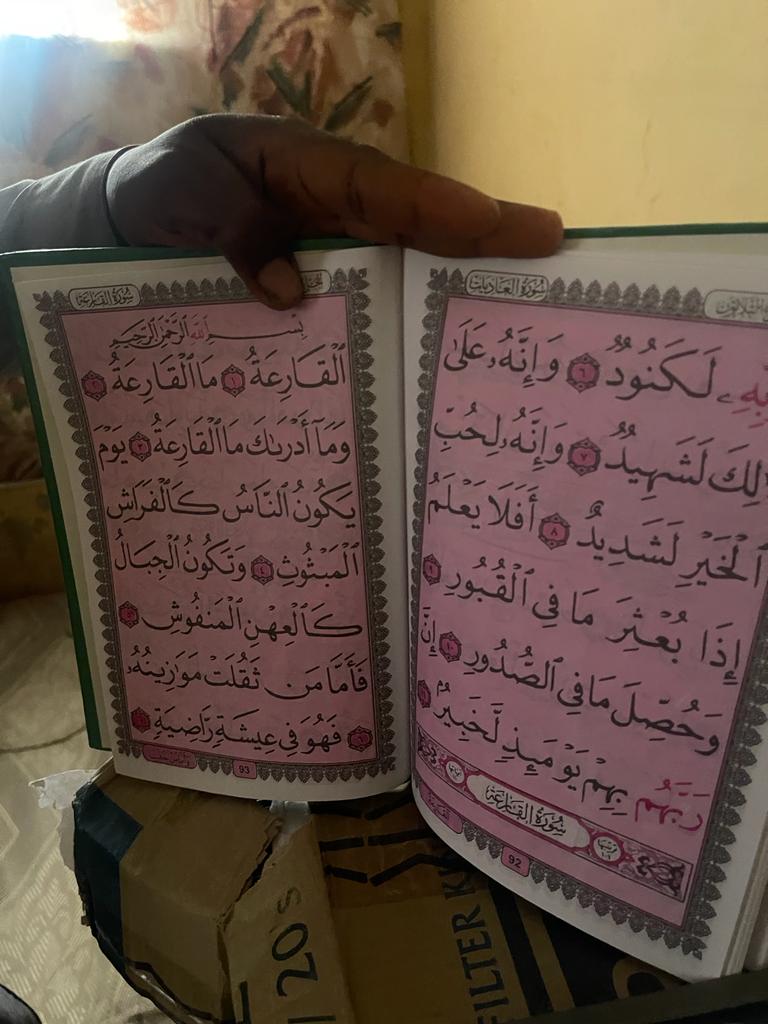 سُورَةُ العَادِيَاتِ
لَكَنُودٌ ٦ وَإِنَّهُۥ عَلَىٰ
لَشَهِيدٌ ٧ وَإِنَّهُۥ لِحُبِّ
ٱلْخَيْرِ لَشَدِيدٌ ٨ أَفَلَا يَعْلَمُ
إِذَا بُعْثِرَ مَا فِي ٱلْقُبُورِ ٩
وَحُصِّلَ مَا فِي ٱلصُّدُورِ ١٠ إِنَّ
رَبَّهُم بِهِمْ يَوْمَئِذٍ لَّخَبِيرٌ ١١
سُورَةُ القَارِعَةِ
القارعة
92
سُورَةُ القَارِعَةِ
بِسْمِ ٱللَّهِ ٱلرَّحْمَٰنِ ٱلرَّحِيمِ
ٱلْقَارِعَةُ ١ مَا ٱلْقَارِعَةُ ٢
وَمَآ أَدْرَىٰكَ مَا ٱلْقَارِعَةُ ٣ يَوْمَ
يَكُونُ ٱلنَّاسُ كَٱلْفَرَاشِ
ٱلْمَبْثُوثِ ٤ وَتَكُونُ ٱلْجِبَالُ
كَٱلْعِهْنِ ٱلْمَنفُوشِ ٥
فَأَمَّا مَن ثَقُلَتْ مَوَٰزِينُهُۥ
٦ فَهُوَ فِي عِيشَةٍ رَّاضِيَةٍ ٧
93
20's
FILTER